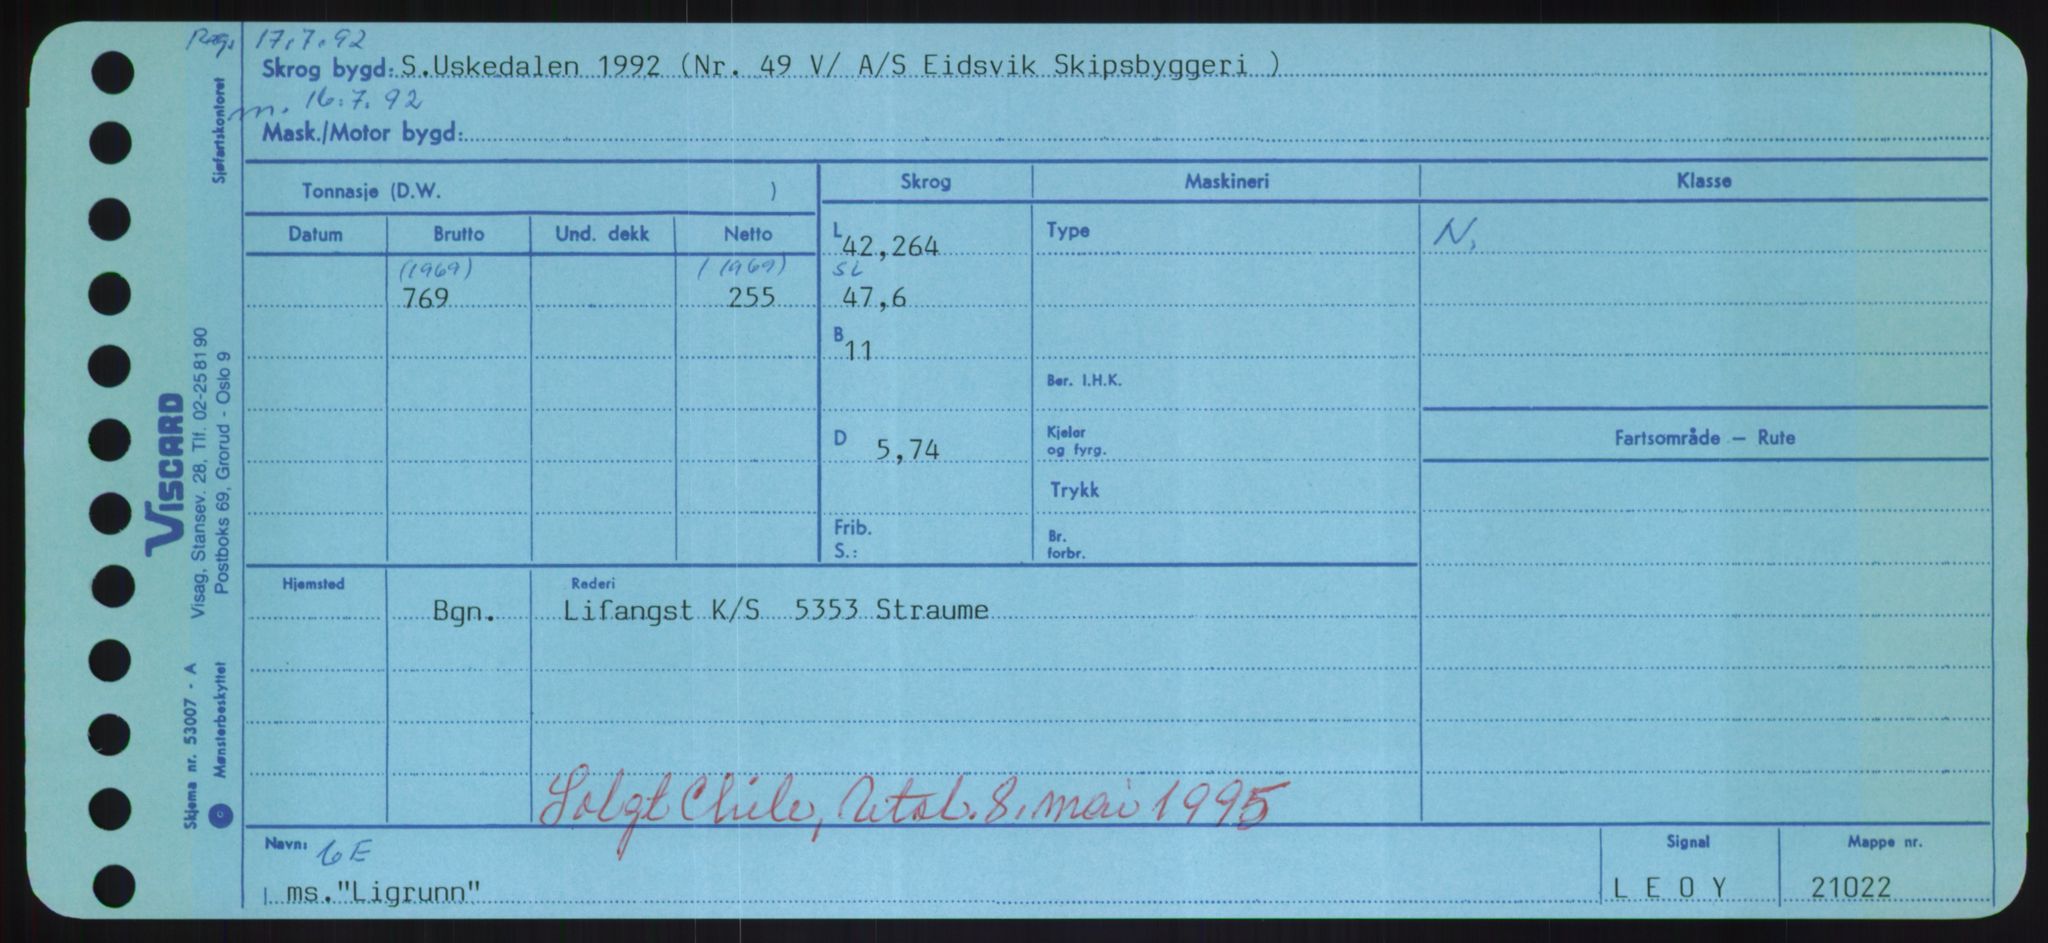 Reg. 17.7.92
Skrog bygd: S.Uskedalen 1992 (Nr. 49 V/ A/S Eidsvik Skipsbyggeri )
m. 16.7.92
Mask./Motor bygd:
Tonnasje (D.W. )
Skrog Maskineri Klasse
Datum Brutto Und. dekk Netto
L 42,264 Type N.
(1969) (1969) SL
769 255 47,6
B 11
Ber. I.H.K.
D 5,74 Kjeler og fyrg.
Fartsområde — Rute
Trykk
Frib. S.: Br. forbr.
Hjemsted Rederi
Bgn. Lifangst K/S 5353 Straume
Solgt Chile, Utsl. 8. mai 1995
Navn: 6E Signal Mappe nr.
ms. "Ligrunn" L E O Y 21022
Sjøfartskontoret
VISCARD
Visag, Stansev. 28, Tlf. 02-25 81 90
Postboks 69, Grorud - Oslo 9
Skjema nr. 53007 - A
Mønsterbeskyttet